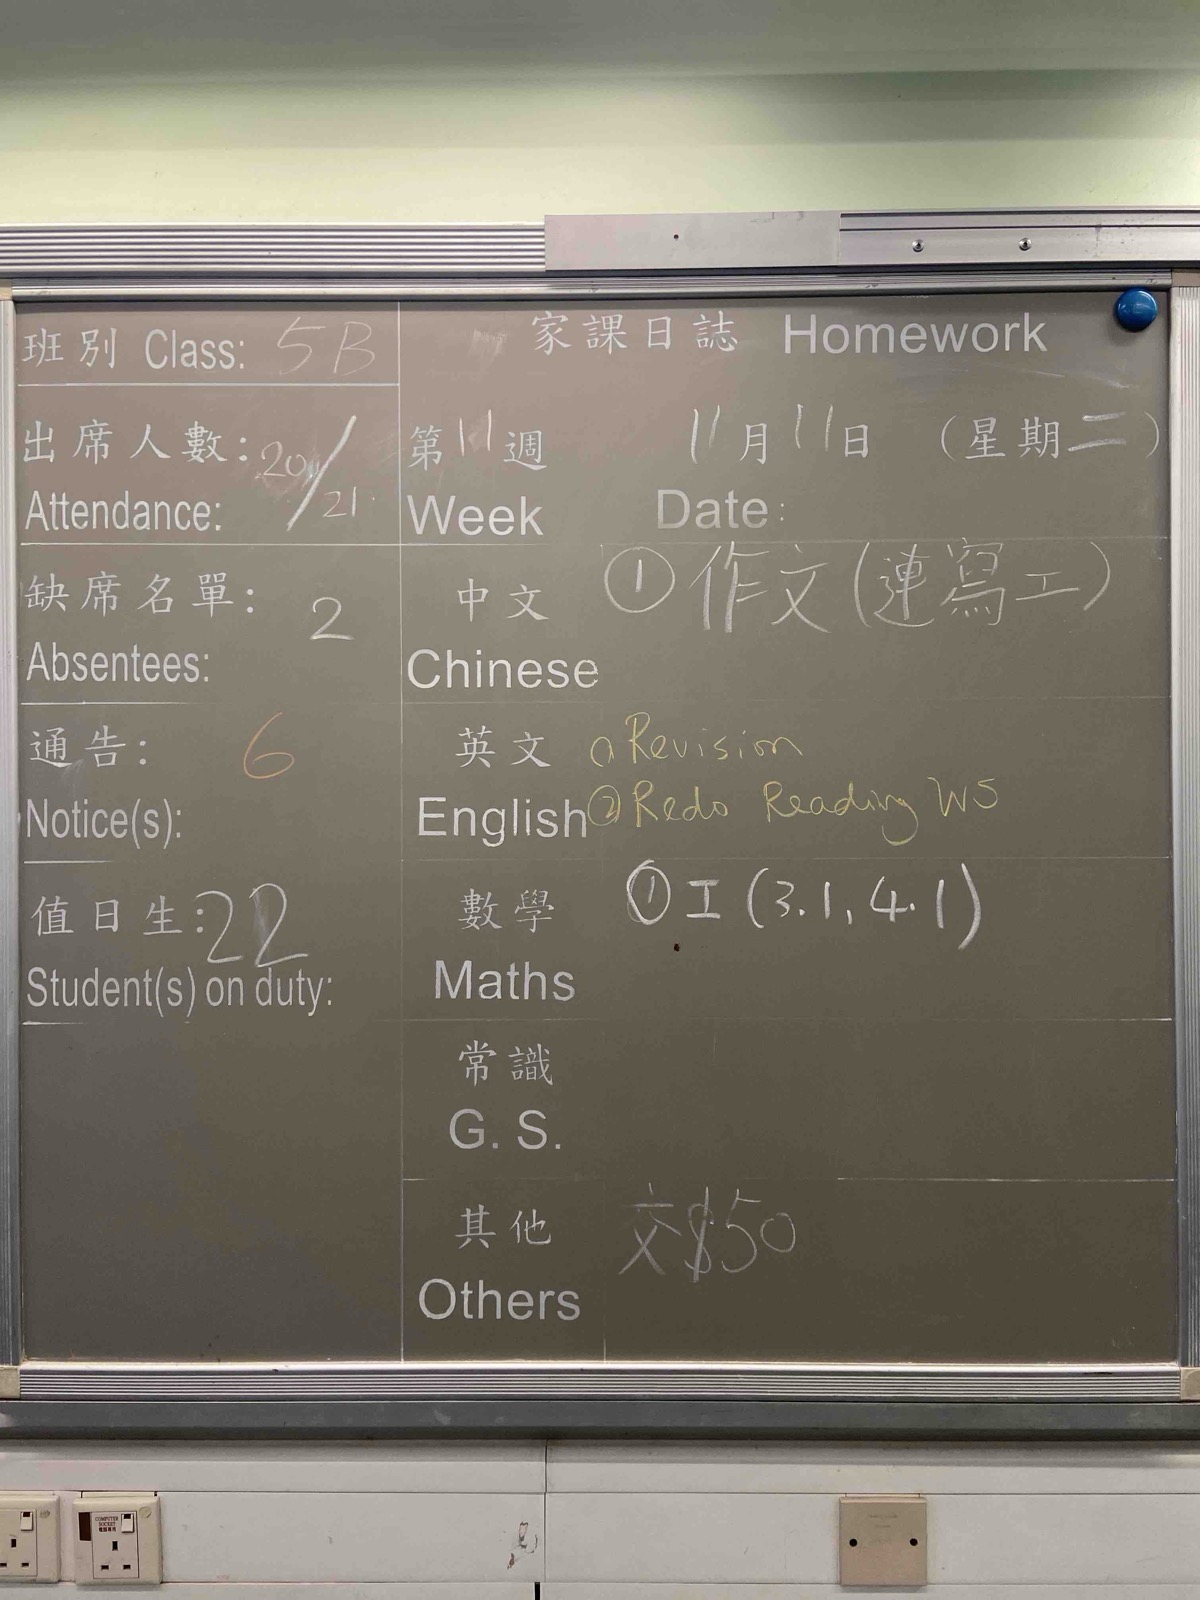 班別 Class: 5B
出席人數: 20/21
Attendance:
缺席名單: 2
Absentees:
通告: 6
Notice(s):
值日生: 22
Student(s) on duty:
家課日誌 Homework
第11週 11月11日 (星期二)
Week Date:
中文 ① 作文(連寫工)
Chinese
英文 ① Revision
English ② Redo Reading WS
數學 ① 工 (3.1, 4.1)
Maths
常識
G. S.
其他 交$50
Others
COMPUTER
SOCKET